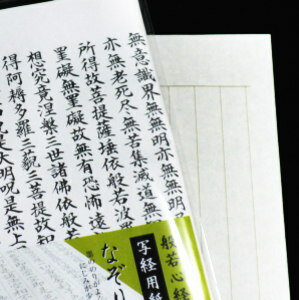 無意識界無無明亦無
亦無老死盡無苦集滅道無
所得故菩提薩埵依般若波
罣礙無罣礙故無有恐怖遠
想究竟涅槃三世諸佛依般若
得阿耨多羅三藐三菩提故知
是大明呪是無上
般若心経
写経用紙
なぞり
墨ののりがよく